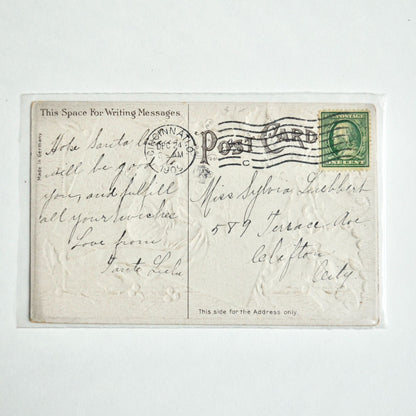 This Space For Writing Messages.
Made in Germany
Hope Santa
will be good
you, and fulfill
all your wishes
Love from
CINCINNATI, O.
DEC 24
AM
1909
C
POST CARD
U.S. POSTAGE
ONE CENT
Miss Sylvia
589 Terrace Ave
Clifton
City
This side for the Address only.